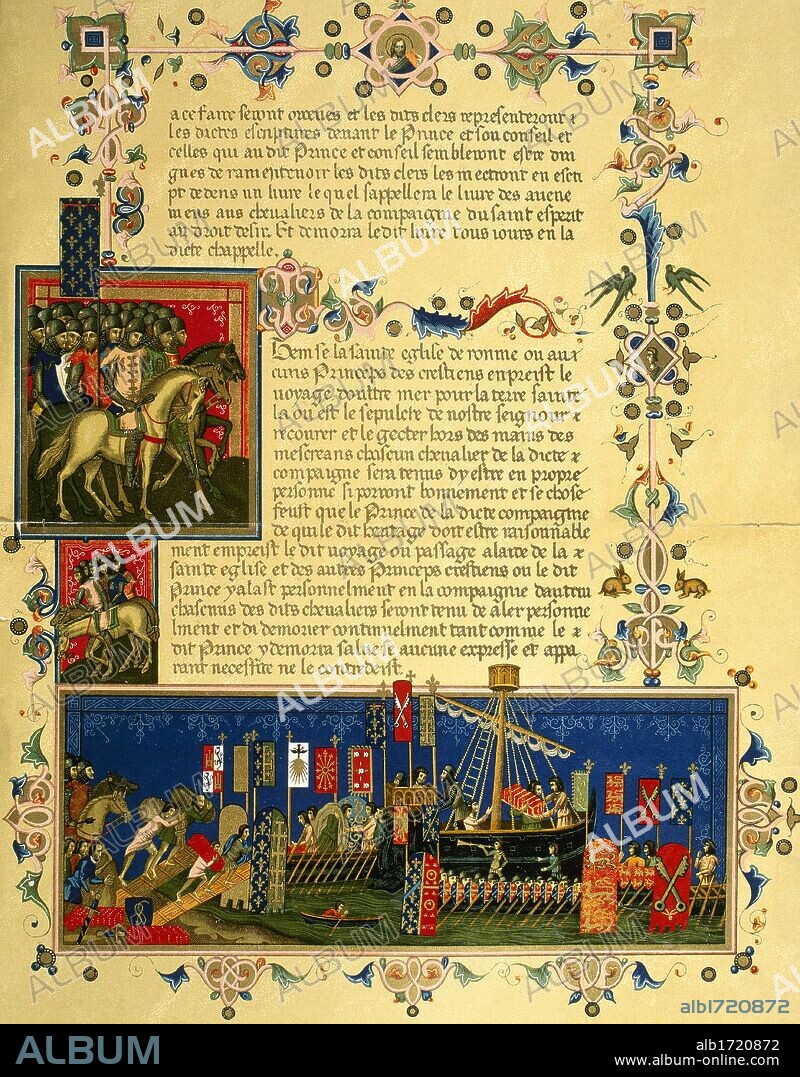 a ce faire seront ordenes et les dits clers representeront &
les dictes escriptures devant le Prince et son conseil et
celles qui au dit Prince et conseil sembleront estre din
gnes de ramentevoir les dits clers les mectront en escri
pt dedens un livre le quel sappellera le livre des avene
mens aus chevaliers de la compaignie du saint esperit
au droit desir. Et demorra le dit livre tous iours en la
dicte chappelle.
Item se la sainte eglise de romme ou au &
cuns Princeps des crestiens enpreist le
voyage doultre mer pour la terre sainte
la ou est le sepulcre de nostre seignour &
recouvrer et le gecter hors des mains des
mescreans chascun chevalier de la dicte &
compaignie sera tenus dy estre en propre
personne si porront bonnement et se chose
feust que le Prince de la dicte compaignie
de qui le dit heritage doit estre raisonnable
ment empreist le dit voyage ou passage a laide de la &
sainte eglise et des autres Princeps crestiens ou le dit
Prince y alast personnelment en la compaignie dautrui
chascuns des dits chevaliers seront tenu de aler personne
lment et di demorer continuelment tant comme le &
dit Prince y demorra salve se aucune expresse et appa
rant necessite ne le contredeist
ALBUM
alb1720872
ALBUM
alb1720872
www.album-online.com